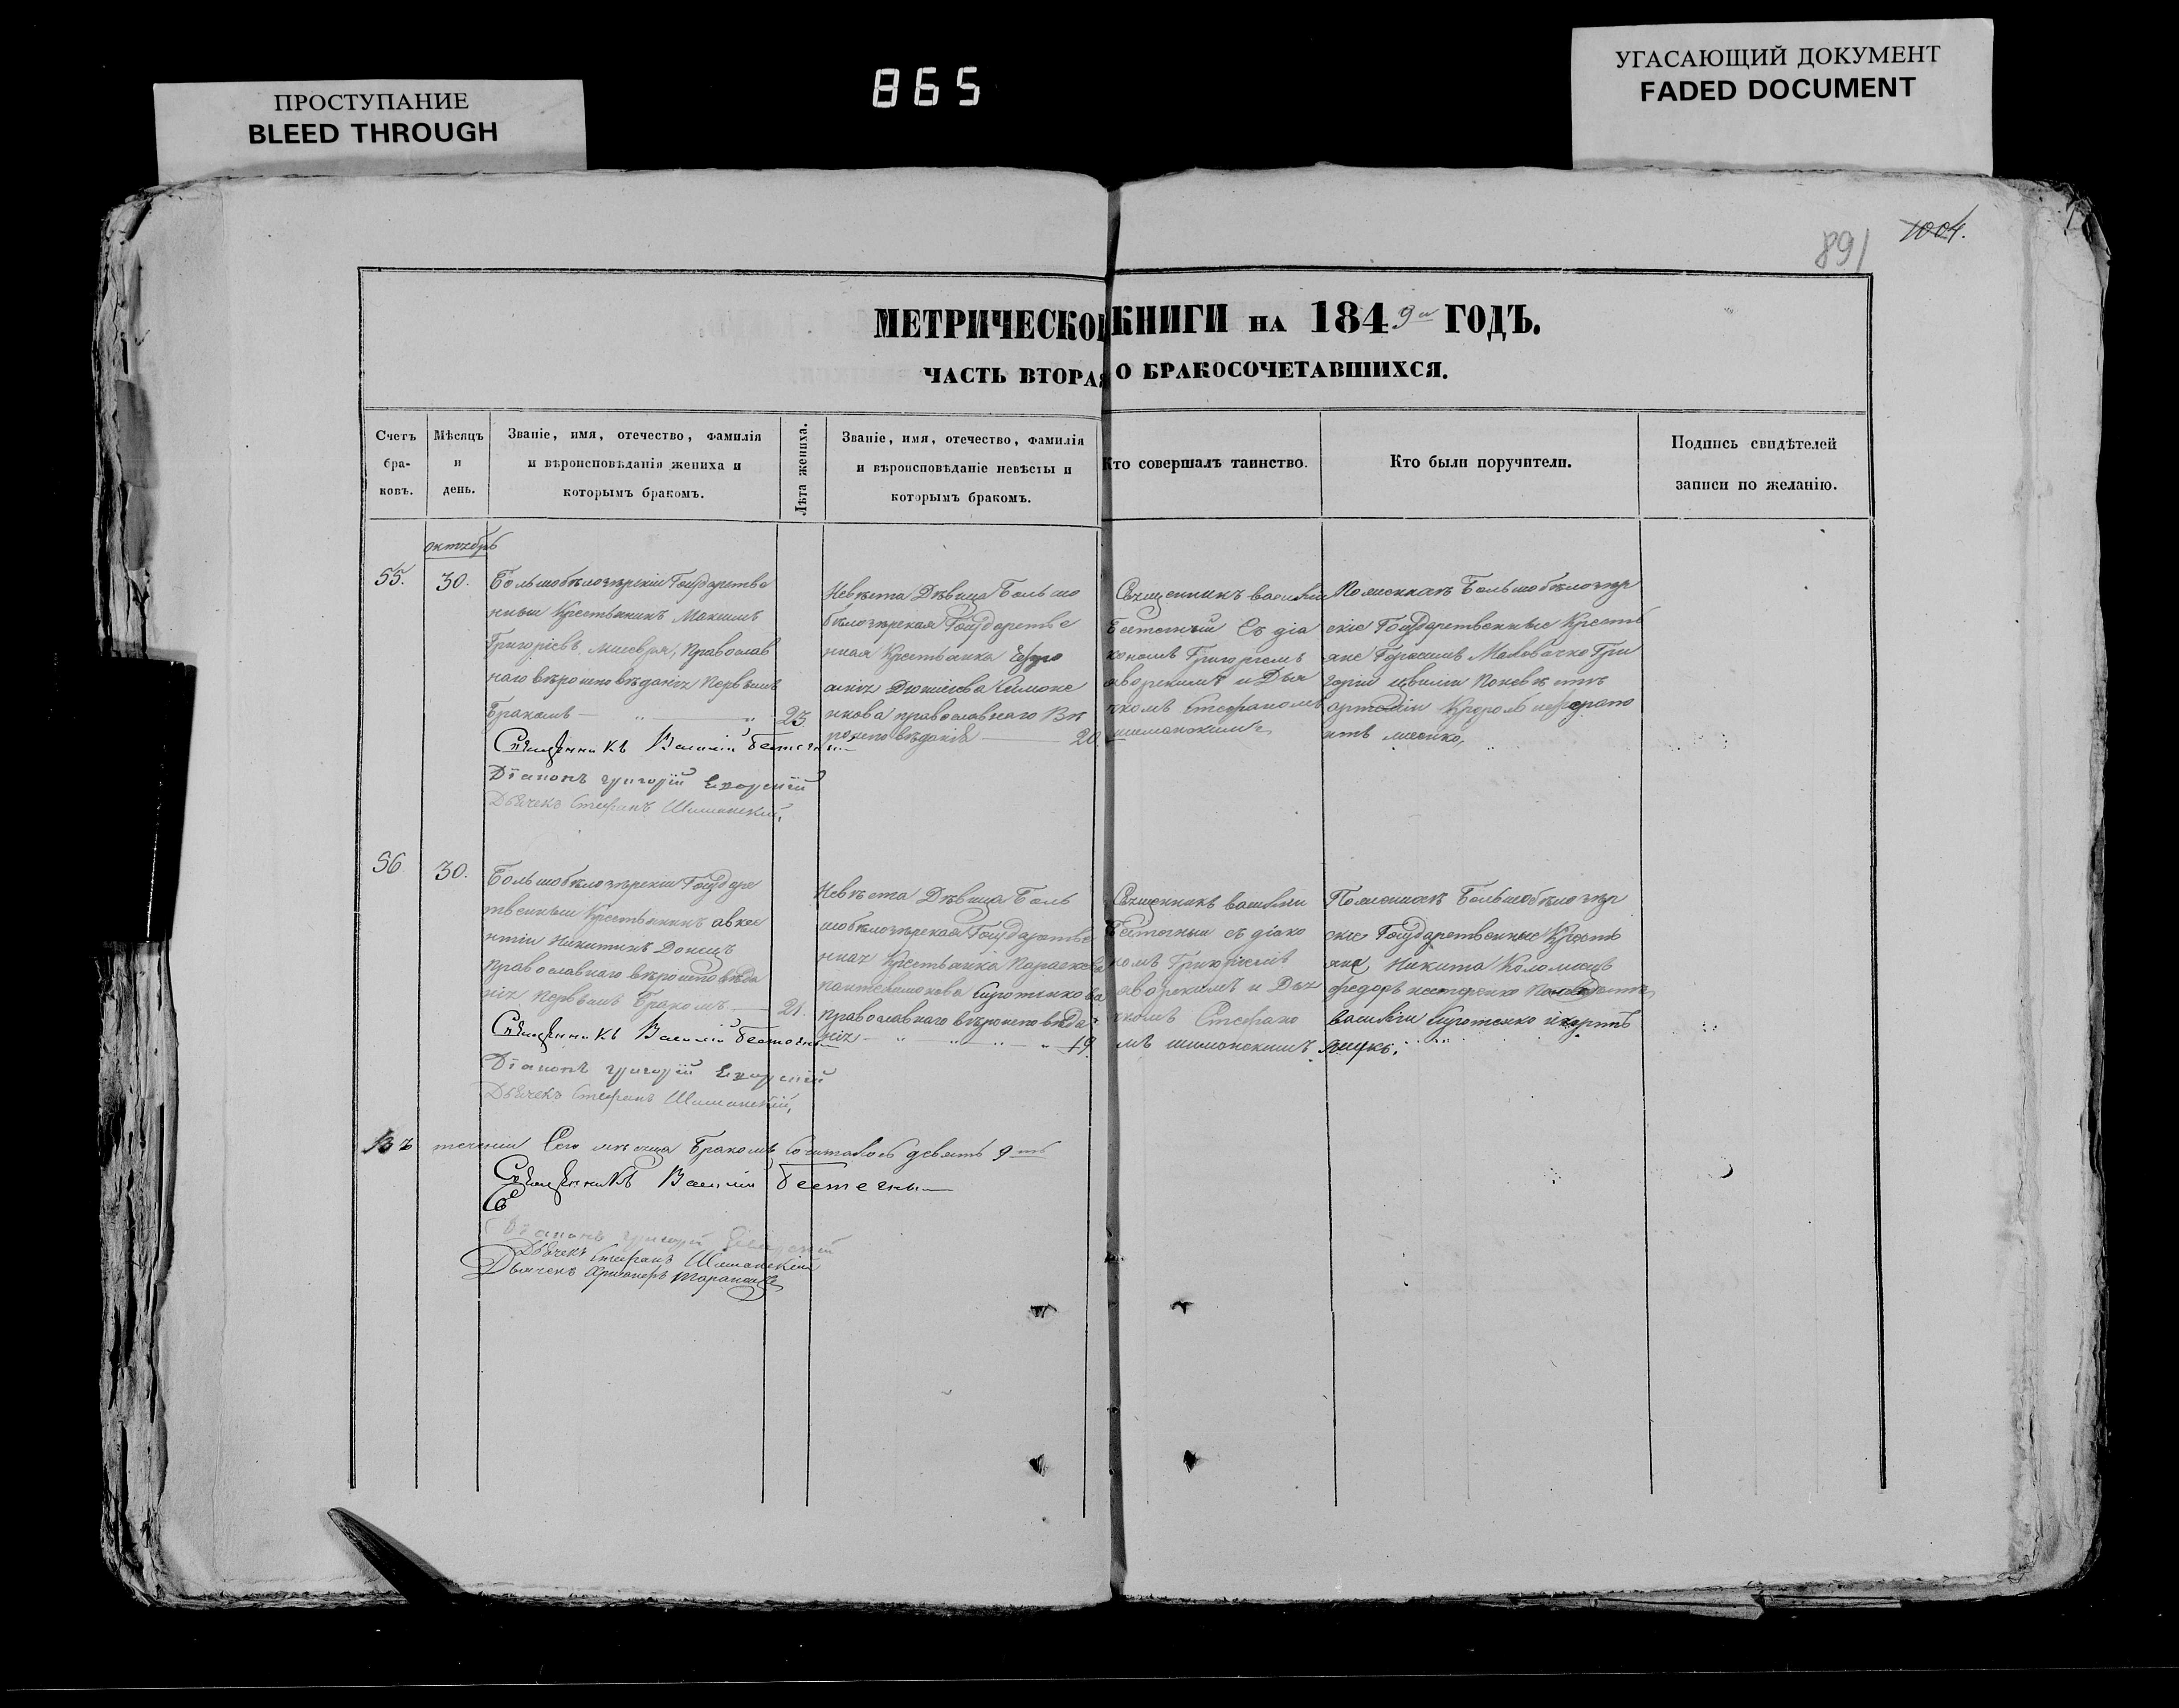 ПРОСТУПАНИЕ
BLEED THROUGH
865
УГАСАЮЩИЙ ДОКУМЕНТ
FADED DOCUMENT
891
1004.
МЕТРИЧЕСКОЙ КНИГИ НА 1849 ГОДЪ.
ЧАСТЬ ВТОРАЯ О БРАКОСОЧЕТАВШИХСЯ.
Счетъ бра- ковъ.
Мѣсяцъ и день.
Званіе, имя, отечество, фамилія
и вѣроисповѣданія жениха и
которымъ бракомъ.
Лѣта жениха.
Званіе, имя, отечество, фамилія
и вѣроисповѣданіе невѣсты и
которымъ бракомъ.
Кто совершалъ таинство.
Кто были поручители.
Подпись свидѣтелей
записи по желанію.
октябрь
55.
30.
Большобѣлозѣрскіи Государстве
нныи Крестьянинъ Максимъ
Григоріевъ Православ
наго вѣроисповѣданія Первымъ
Бракомъ 23
Священникъ Василій Бестечны
Діаконъ григорій
Дьячекъ Стефанъ Шиманскій,
Невѣста Дѣвица Большо
бѣлозѣрская Государстве
нная Крестьянка
Симоне
нкова православнаго Вѣ
роисповѣданія 20.
Священникъ василіи
Бестечныи Съ діа
кономъ Григоріемъ
и Дья
чкомъ Стефаномъ
шиманскимъ
По женихѣ Большобѣлозѣр
скіе Государственные Кресть
яне Герасимъ Маловичко Гри
горіи По невѣстѣ
56
30.
Большобѣлозѣрскіи Государс
твенныи Крестьянинъ авксе
нтіи Никитинъ Донецъ
православнаго вѣроисповѣда
нія Первымъ Бракомъ 21.
Священникъ Василій Бестечны
Діаконъ григорій
Дьячекъ Стефанъ Шиманскій,
Невѣста Дѣвица Боль
шобѣлозѣрская Государстве
нная Крестьянка Параскева
пантелимонова Сиротенкова
православнаго вѣроисповѣда
нія 19
Священникъ василіи
Бестечныи съ діако
номъ Григоріемъ
и Дья
чкомъ Стефано
мъ шиманскимъ
По женихѣ Большобѣлозѣр
скіе Государственные Кресть
яне Никита Коломоецъ
федоръ нестеренко По невѣстѣ
василіи Сиротенко
Въ течении Сего мѣсяца Бракомъ Сочиталось девять 9
Священникъ Василій Бестечны
Діаконъ григорій
Дьячекъ Стефанъ Шиманскій
Дьячекъ